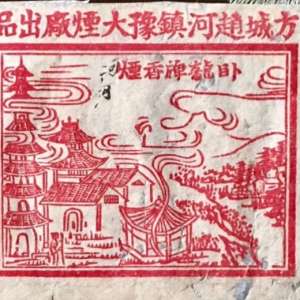 方城趙河鎮豫大煙廠出品
卧龍禪香煙